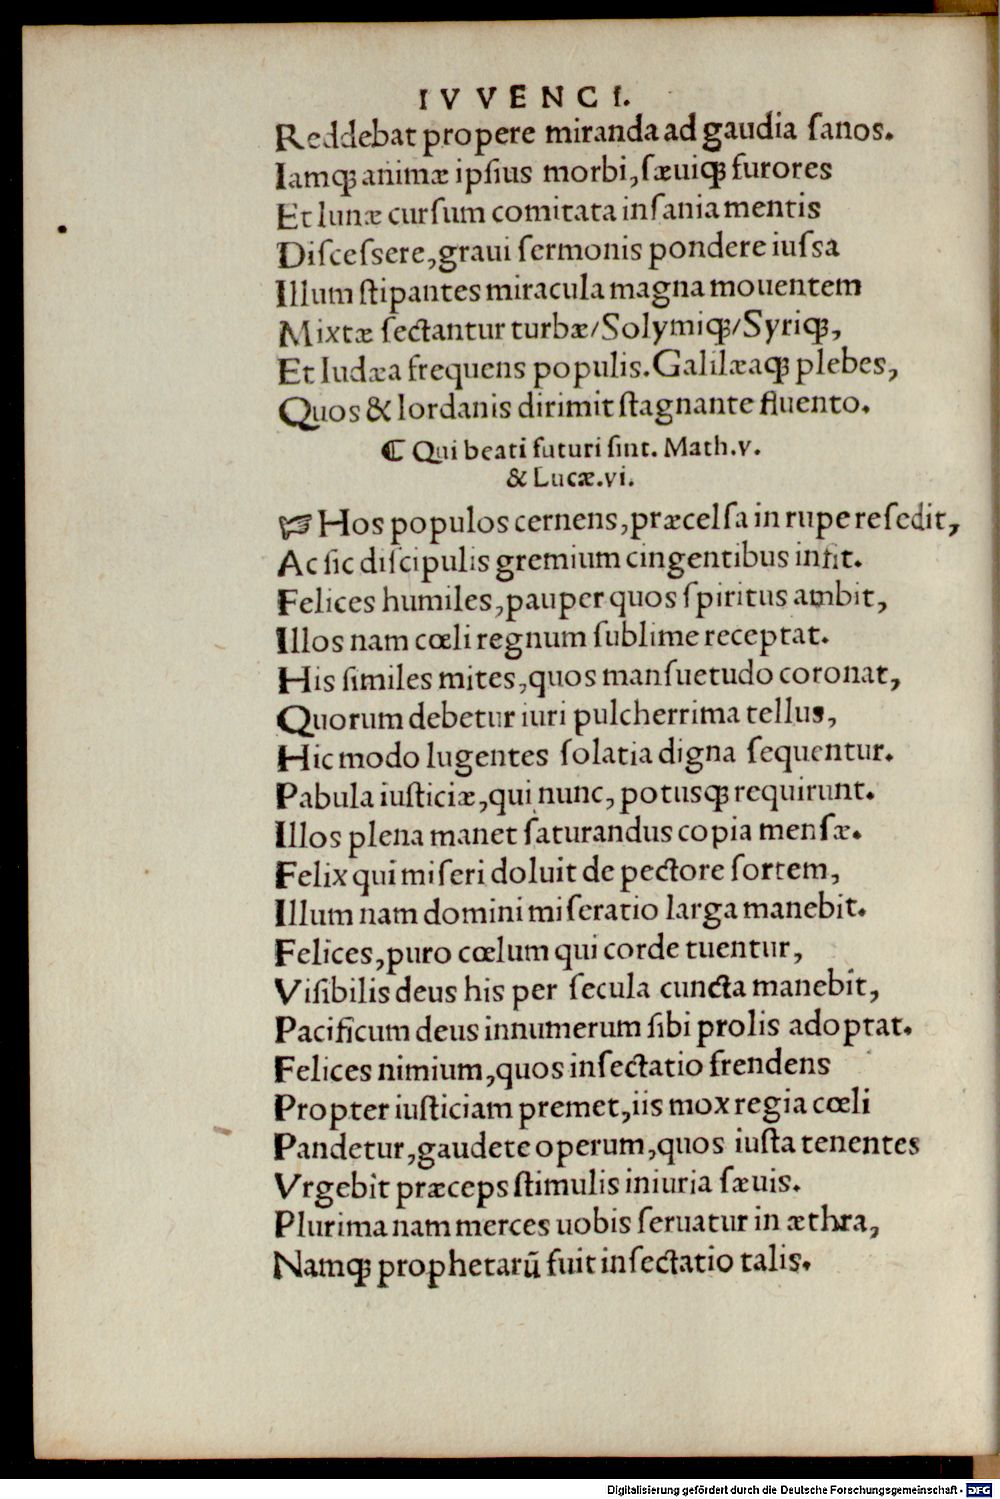 IVVENCI.
Reddebat propere miranda ad gaudia ſanos.
Iamqꝫ animæ ipſius morbi, ſæuiqꝫ furores
Et lunæ curſum comitata inſania mentis
Diſceſsere, graui ſermonis pondere iuſsa
Illum ſtipantes miracula magna mouentem
Mixtæ ſectantur turbæ/Solymiqꝫ/Syriqꝫ,
Et Iudæa frequens populis. Galilæaqꝫ plebes,
Quos & Iordanis dirimit ſtagnante fluento.
⁋ Qui beati futuri ſint. Math.v.
& Lucæ.vi.
☞ Hos populos cernens, præcelſa in rupe reſedit,
Ac ſic diſcipulis gremium cingentibus infit.
Felices humiles, pauper quos ſpiritus ambit,
Illos nam cœli regnum ſublime receptat.
His ſimiles mites, quos manſuetudo coronat,
Quorum debetur iuri pulcherrima tellus,
Hic modo lugentes ſolatia digna ſequentur.
Pabula iuſticiæ, qui nunc, potusqꝫ requirunt.
Illos plena manet ſaturandus copia menſæ.
Felix qui miſeri doluit de pectore ſortem,
Illum nam domini miſeratio larga manebit.
Felices, puro cœlum qui corde tuentur,
Viſibilis deus his per ſecula cuncta manebit,
Pacificum deus innumerum ſibi prolis adoptat.
Felices nimium, quos inſectatio frendens
Propter iuſticiam premet, iis mox regia cœli
Pandetur, gaudete operum, quos iuſta tenentes
Vrgebit præceps ſtimulis iniuria ſæuis.
Plurima nam merces uobis ſeruatur in æthra,
Namqꝫ prophetarū fuit inſectatio talis.
Digitalisierung gefördert durch die Deutsche Forschungsgemeinschaft - DFG